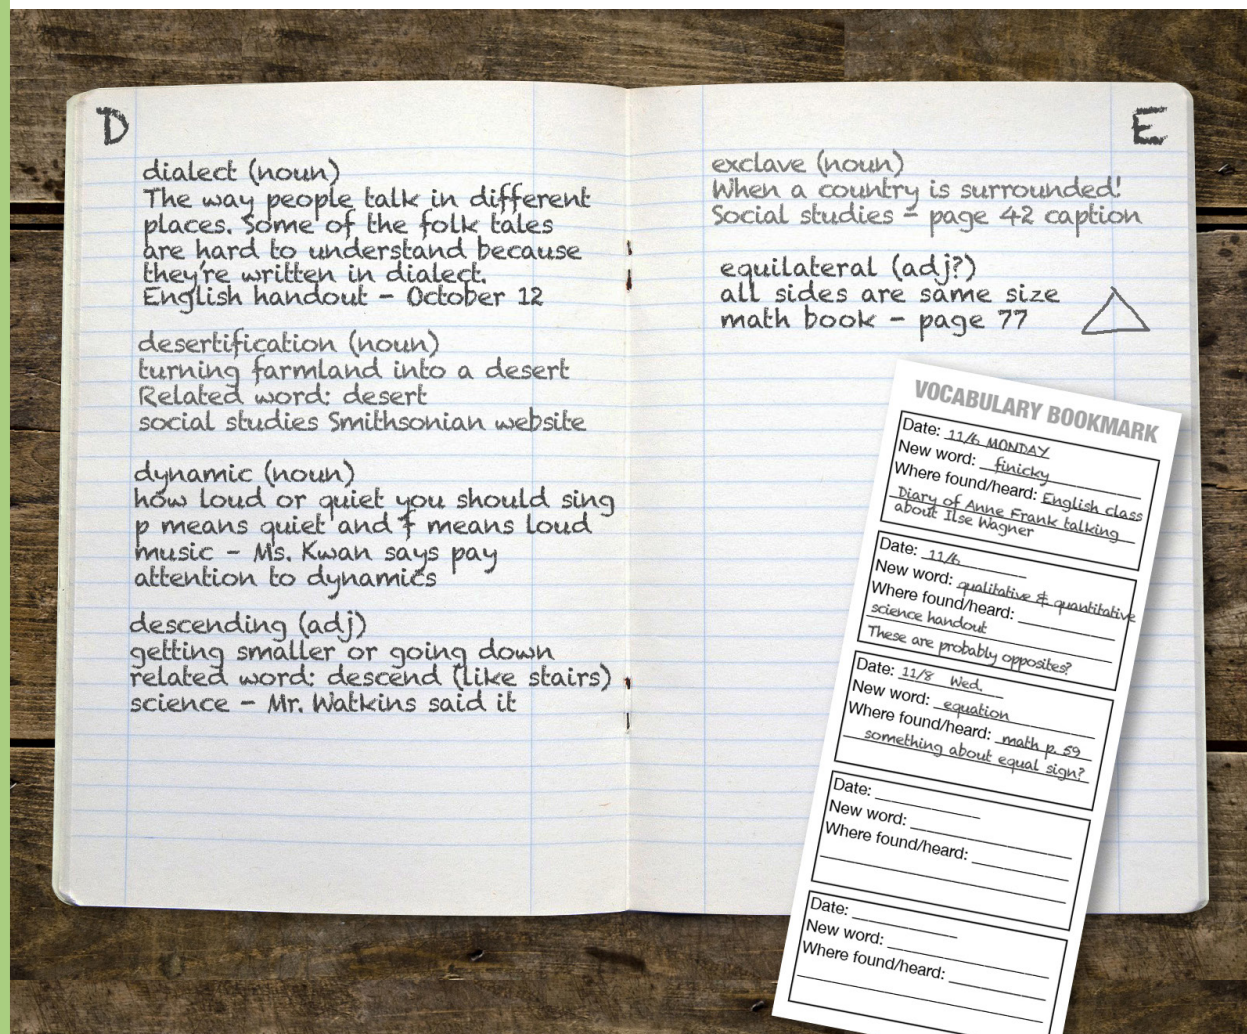 D
dialect (noun)
The way people talk in different
places. Some of the folk tales
are hard to understand because
they're written in dialect.
English handout - October 12
desertification (noun)
turning farmland into a desert
Related word: desert
social studies Smithsonian website
dynamic (noun)
how loud or quiet you should sing
p means quiet and f means loud
music - Ms. Kwan says pay
attention to dynamics
descending (adj)
getting smaller or going down
related word: descend (like stairs)
science - Mr. Watkins said it
E
exclave (noun)
When a country is surrounded!
Social studies - page 42 caption
equilateral (adj?)
all sides are same size
math book - page 77
VOCABULARY BOOKMARK
Date: 11/6 MONDAY
New word: finicky
Where found/heard: English class
Diary of Anne Frank talking
about Ilse Wagner
Date: 11/6
New word: qualitative & quantitative
Where found/heard:
science handout
These are probably opposites?
Date: 11/8 Wed.
New word: equation
Where found/heard: math p. 59
something about equal sign?
Date:
New word:
Where found/heard:
Date:
New word:
Where found/heard: